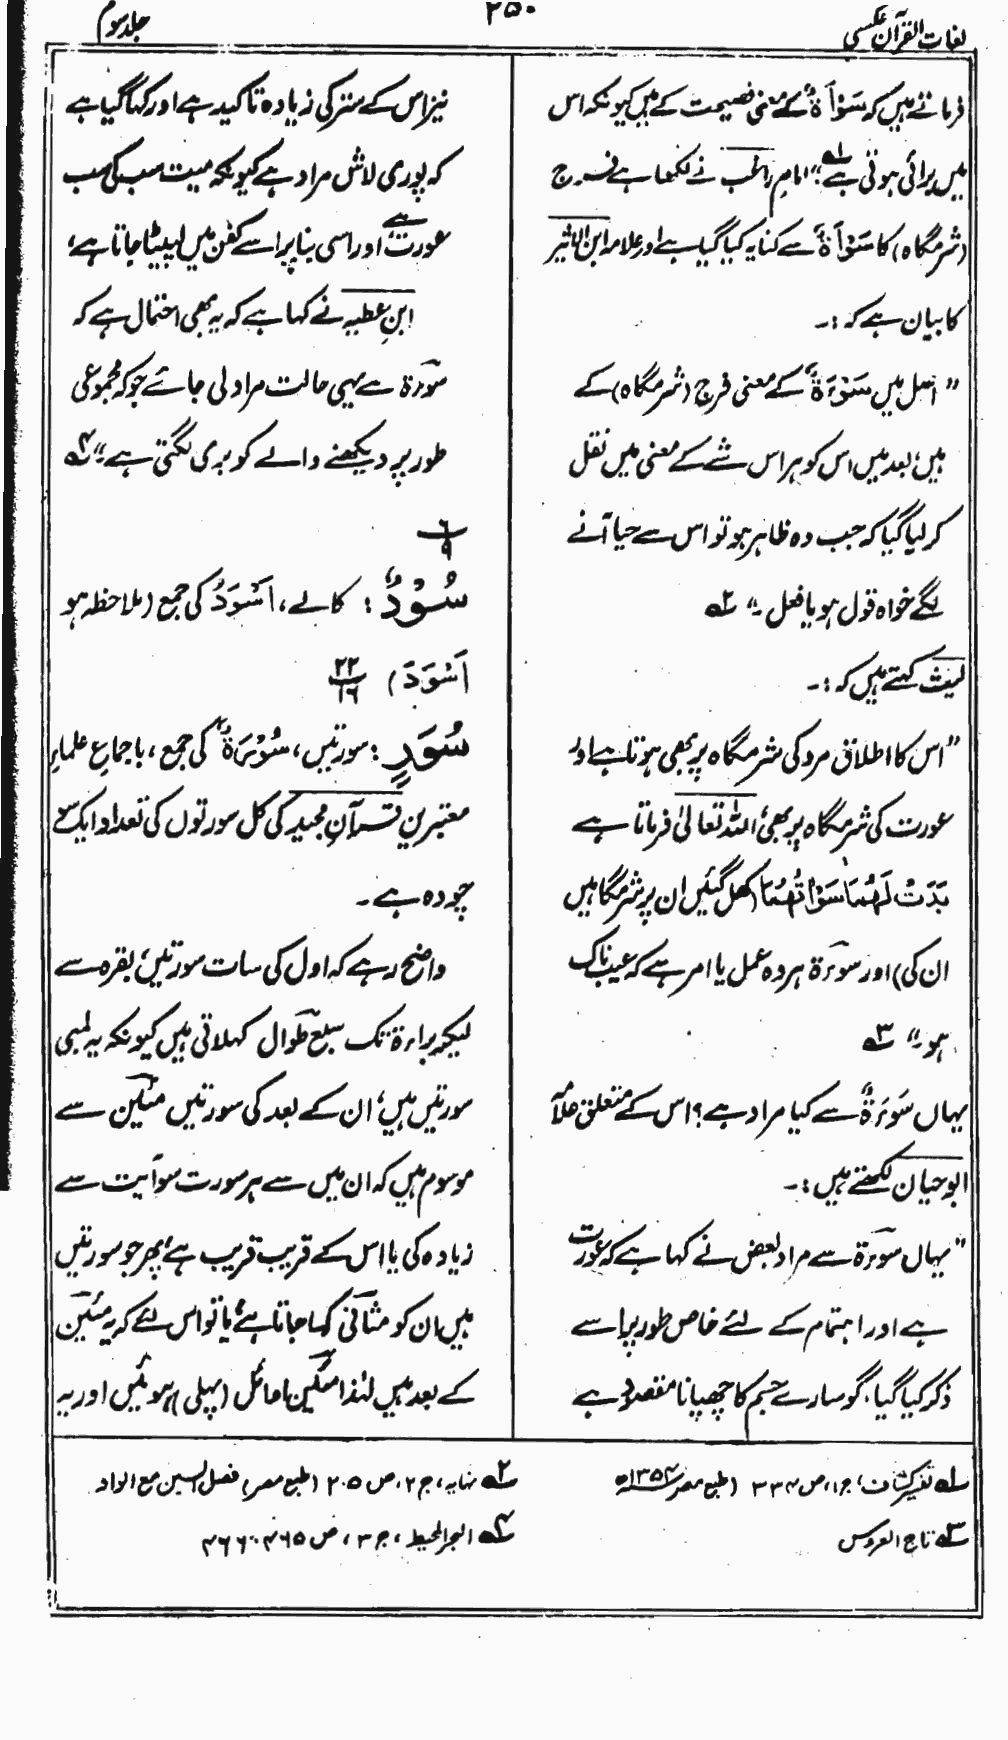 لغات القرآن عکسی
۲۵۰
جلد سوم
فرماتے ہیں کہ سَوْأَۃٌ کے معنی فضیحت کے ہیں کیونکہ اس
میں برائی ہوتی ہے"؂۱ امام راغب نے لکھا ہے فرج
(شرمگاہ) کا سَوْأَۃٌ سے کنایہ کیا گیا ہے اور علامہ ابن الاثیر
کا بیان ہے کہ :۔
" اصل میں سَوْءَۃٌ کے معنی فرج (شرمگاہ) کے
ہیں، بعد میں اس کو ہر اس شے کے معنی میں نقل
کر لیا گیا کہ جب وہ ظاہر ہو تو اس سے حیا آنے
لگے خواہ قول ہو یا فعل۔" ؂۲
لیث کہتے ہیں کہ :۔
" اس کا اطلاق مرد کی شرمگاہ پر بھی ہوتا ہے اور
عورت کی شرمگاہ پر بھی، اللہ تعالیٰ فرماتا ہے
بَدَتْ لَهُمَا سَوْاٰتُهُمَا (کھل گئیں ان پر شرمگاہیں
ان کی) اور سوءۃ ہر وہ عمل یا امر ہے کہ عیب ناک
ہو۔" ؂۳
یہاں سَوْءَۃٌ سے کیا مراد ہے؟ اس کے متعلق علامہ
ابوحیان لکھتے ہیں :۔
" یہاں سوءۃ سے مراد بعض نے کہا ہے کہ عورت
ہے اور اہتمام کے لئے خاص طور پر اسے
ذکر کیا گیا، گو سارے جسم کا چھپانا مقصود ہے
نیز اس کے ستر کی زیادہ تاکید ہے اور کہا گیا ہے
کہ پوری لاش مراد ہے کیونکہ میت سب کی سب
عورت ہے اور اسی بنا پر اسے کفن میں لپیٹا جاتا ہے،
ابن عطیہ نے کہا ہے کہ یہ بھی احتمال ہے کہ
سوءۃ سے یہی حالت مراد لی جائے جو کہ مجموعی
طور پر دیکھنے والے کو بری لگتی ہے۔" ؂۴
۶
۹
سُوْدٌ : کالے، اَسْوَدُ کی جمع (ملاحظہ ہو
اَسْوَدَ) ۲۲
۱۶
سُوَرٍ : سورتیں، سُوْرَۃٌ کی جمع، باجماع علماء
معتبرین قرآن مجید کی کل سورتوں کی تعداد ایک سو
چودہ ہے۔
واضح رہے کہ اول کی سات سورتیں، بقرہ سے
لیکر براءۃ تک سبع طوال کہلاتی ہیں کیونکہ یہ لمبی
سورتیں ہیں، ان کے بعد کی سورتیں مئین سے
موسوم ہیں کہ ان میں سے ہر سورت سو آیت سے
زیادہ کی یا اس کے قریب قریب ہے، پھر جو سورتیں
ہیں ان کو مثانی کہا جاتا ہے، یا تو اس لئے کہ یہ مئین
کے بعد ہیں لہٰذا مئین اوائل (پہلی) ہوئیں اور یہ
؂۱ تفسیر کشاف، ج ۱، ص ۳۳۴ (طبع مصر ۱۳۵۴ھ
؂۲ نہایہ، ج ۲، ص ۲۰۵ (طبع مصر) فصل السین مع الواو
؂۳ تاج العروس
؂۴ البحر المحیط، ج ۳، ص ۴۶۵، ۴۶۶